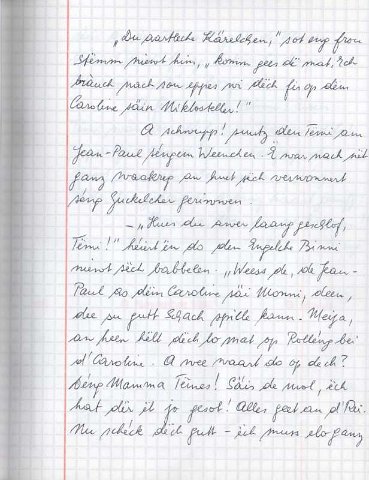 „Du aartlecht Kärelchen,“ sot eng frou
Stëmm nieft him, „komm gees de mat. Ech
bräuch nach sou eppes wi dëch fir op dem
Caroline säin Niklosteller!“
A schwupp! sëutz den Temi am
Jean-Paul séngem Weenchen. E war nach net
ganz waakreg an huet sech verwonnert
séng Guckelcher geriwwen.
– „Hues du awer laang geschlof,
Temi!“ héiert en do den Engelche Binni
nieft sech babbelen. „Weess de, de Jean-
Paul as dem Caroline säi Monni, deen,
dee su gutt Schach spille kann. Meija,
an heen hëlt dech lo mat op Rolléng bei
d'Caroline. A wee waart do op dech?
Déng Mamma Teines! Säis de wol, ech
hat dir et jo gesot! Alles geet an d'Rei.
Nu schéck dech gutt – ech muss elo ganz